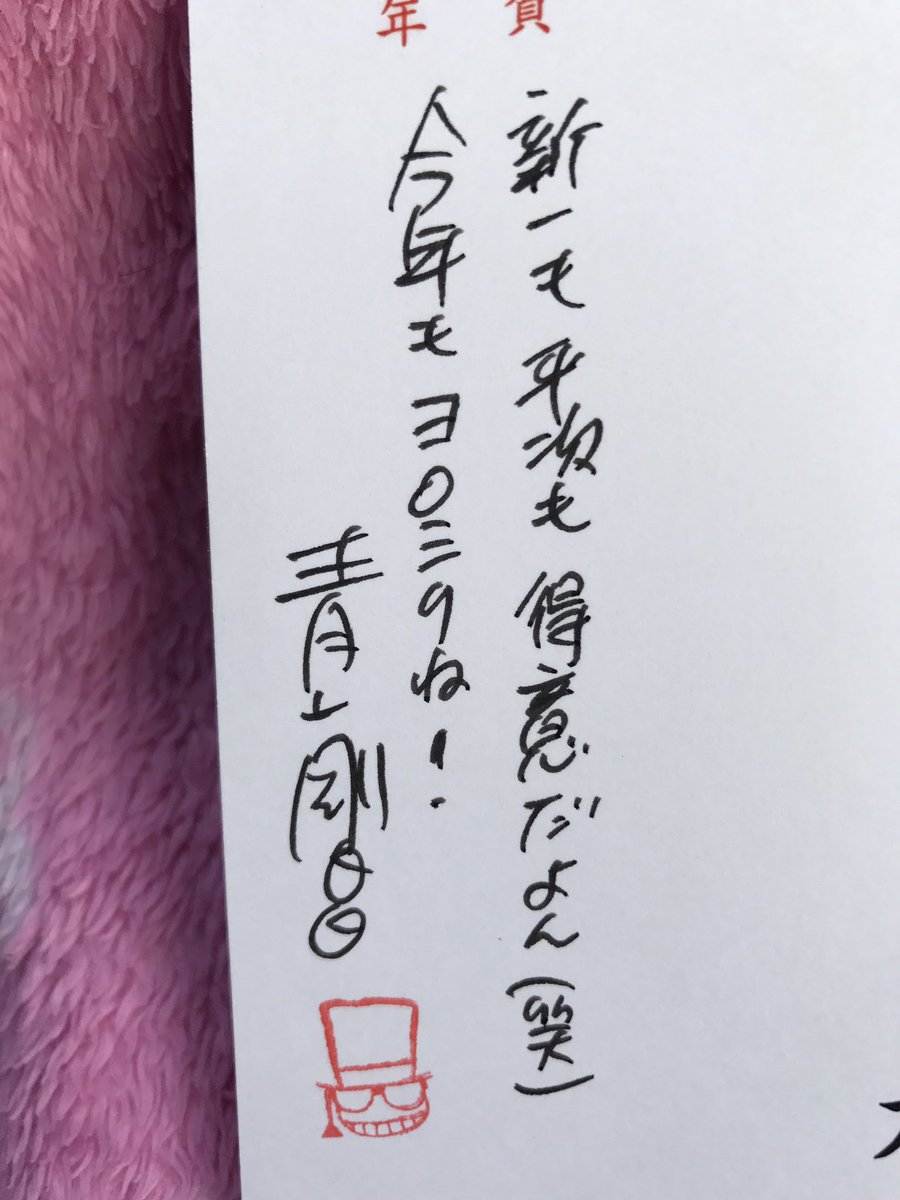 賀
年
新一も平次も得意だよん(笑)
今年もヨロシクね!
青山剛昌